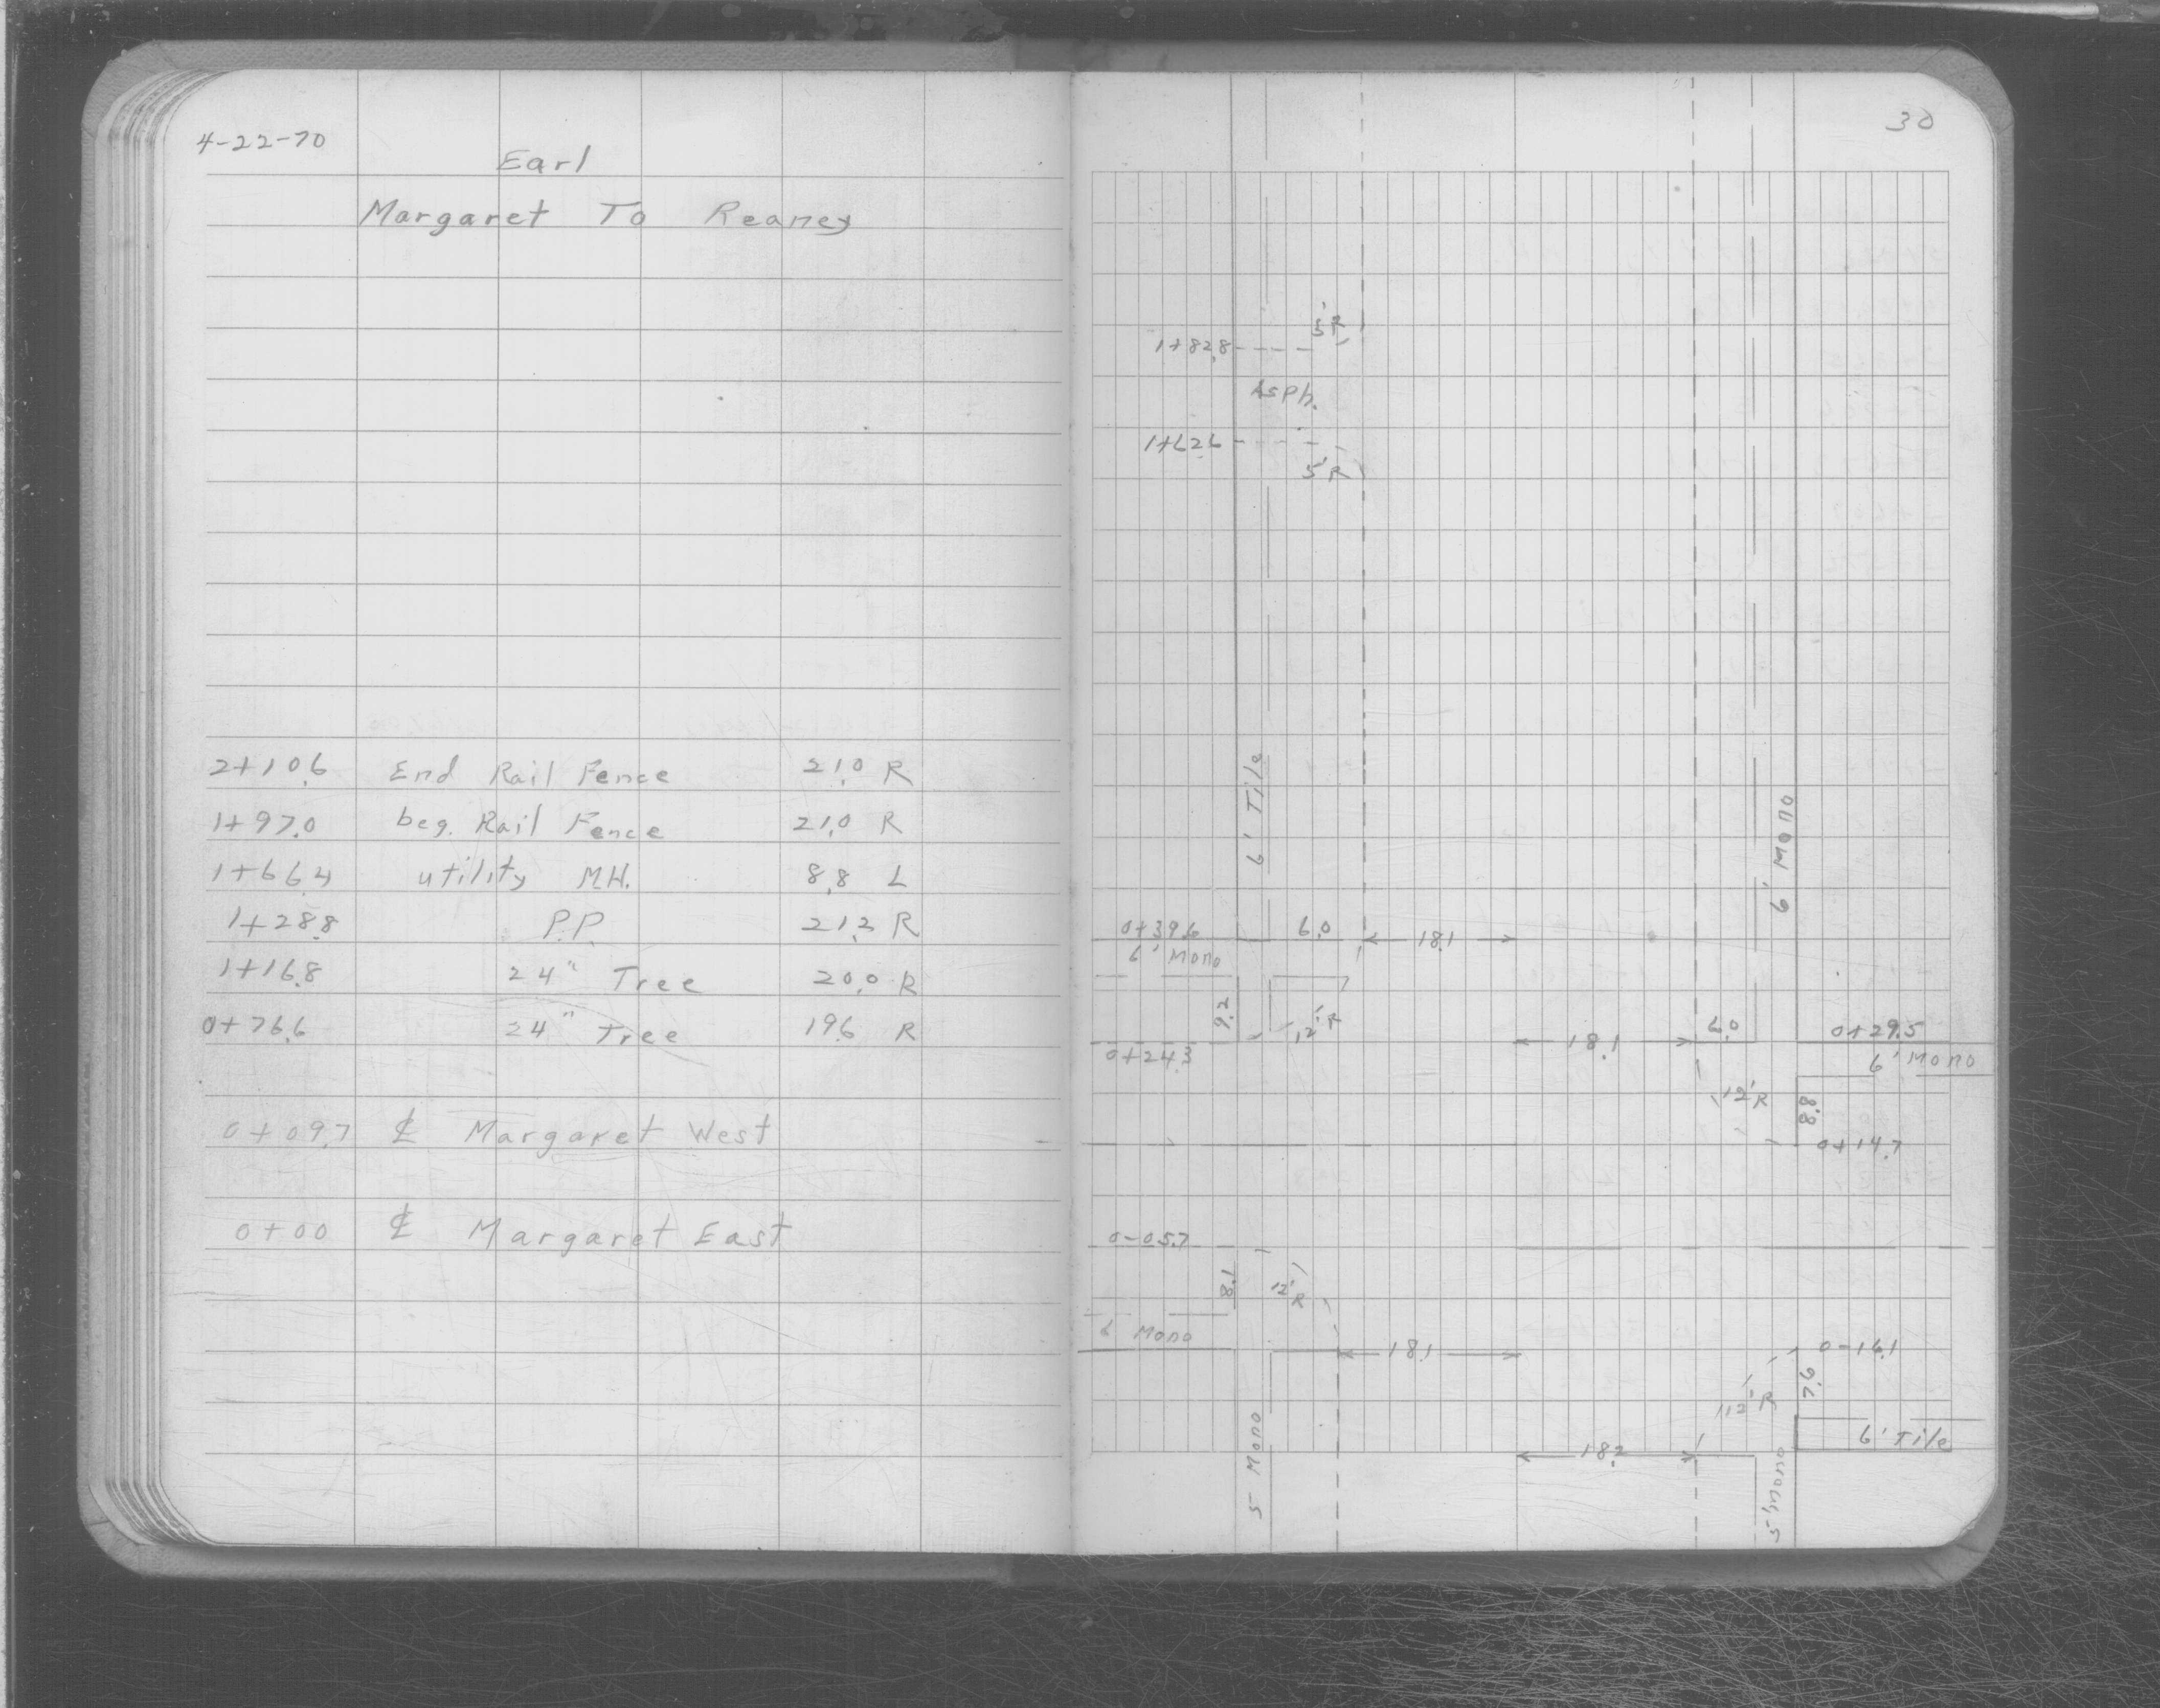 4-22-70
Earl
Margaret To Reaney
2+10.6 End Rail Fence 21.0 R
1+97.0 beg. Rail Fence 21.0 R
1+66.4 utility M.H. 8.8 L
1+28.8 P.P. 21.2 R
1+16.8 24" Tree 20.0 R
0+76.6 24" Tree 19.6 R
0+09.7 ℄ Margaret West
0+00 ℄ Margaret East
30
5'R
1+82.8
Asph.
1+62.6
5'R
6' Tile
6' Mono
0+39.6 6.0 18.1
6' Mono
9.2
12'R
0+24.3
18.1 6.0 0+29.5
6' Mono
12'R
8.8
0+14.7
0-05.7
8.1
12'R
6 Mono
18.1
0-16.1
7.6
12'R
6' Tile
18.2
5 Mono
5' Mono